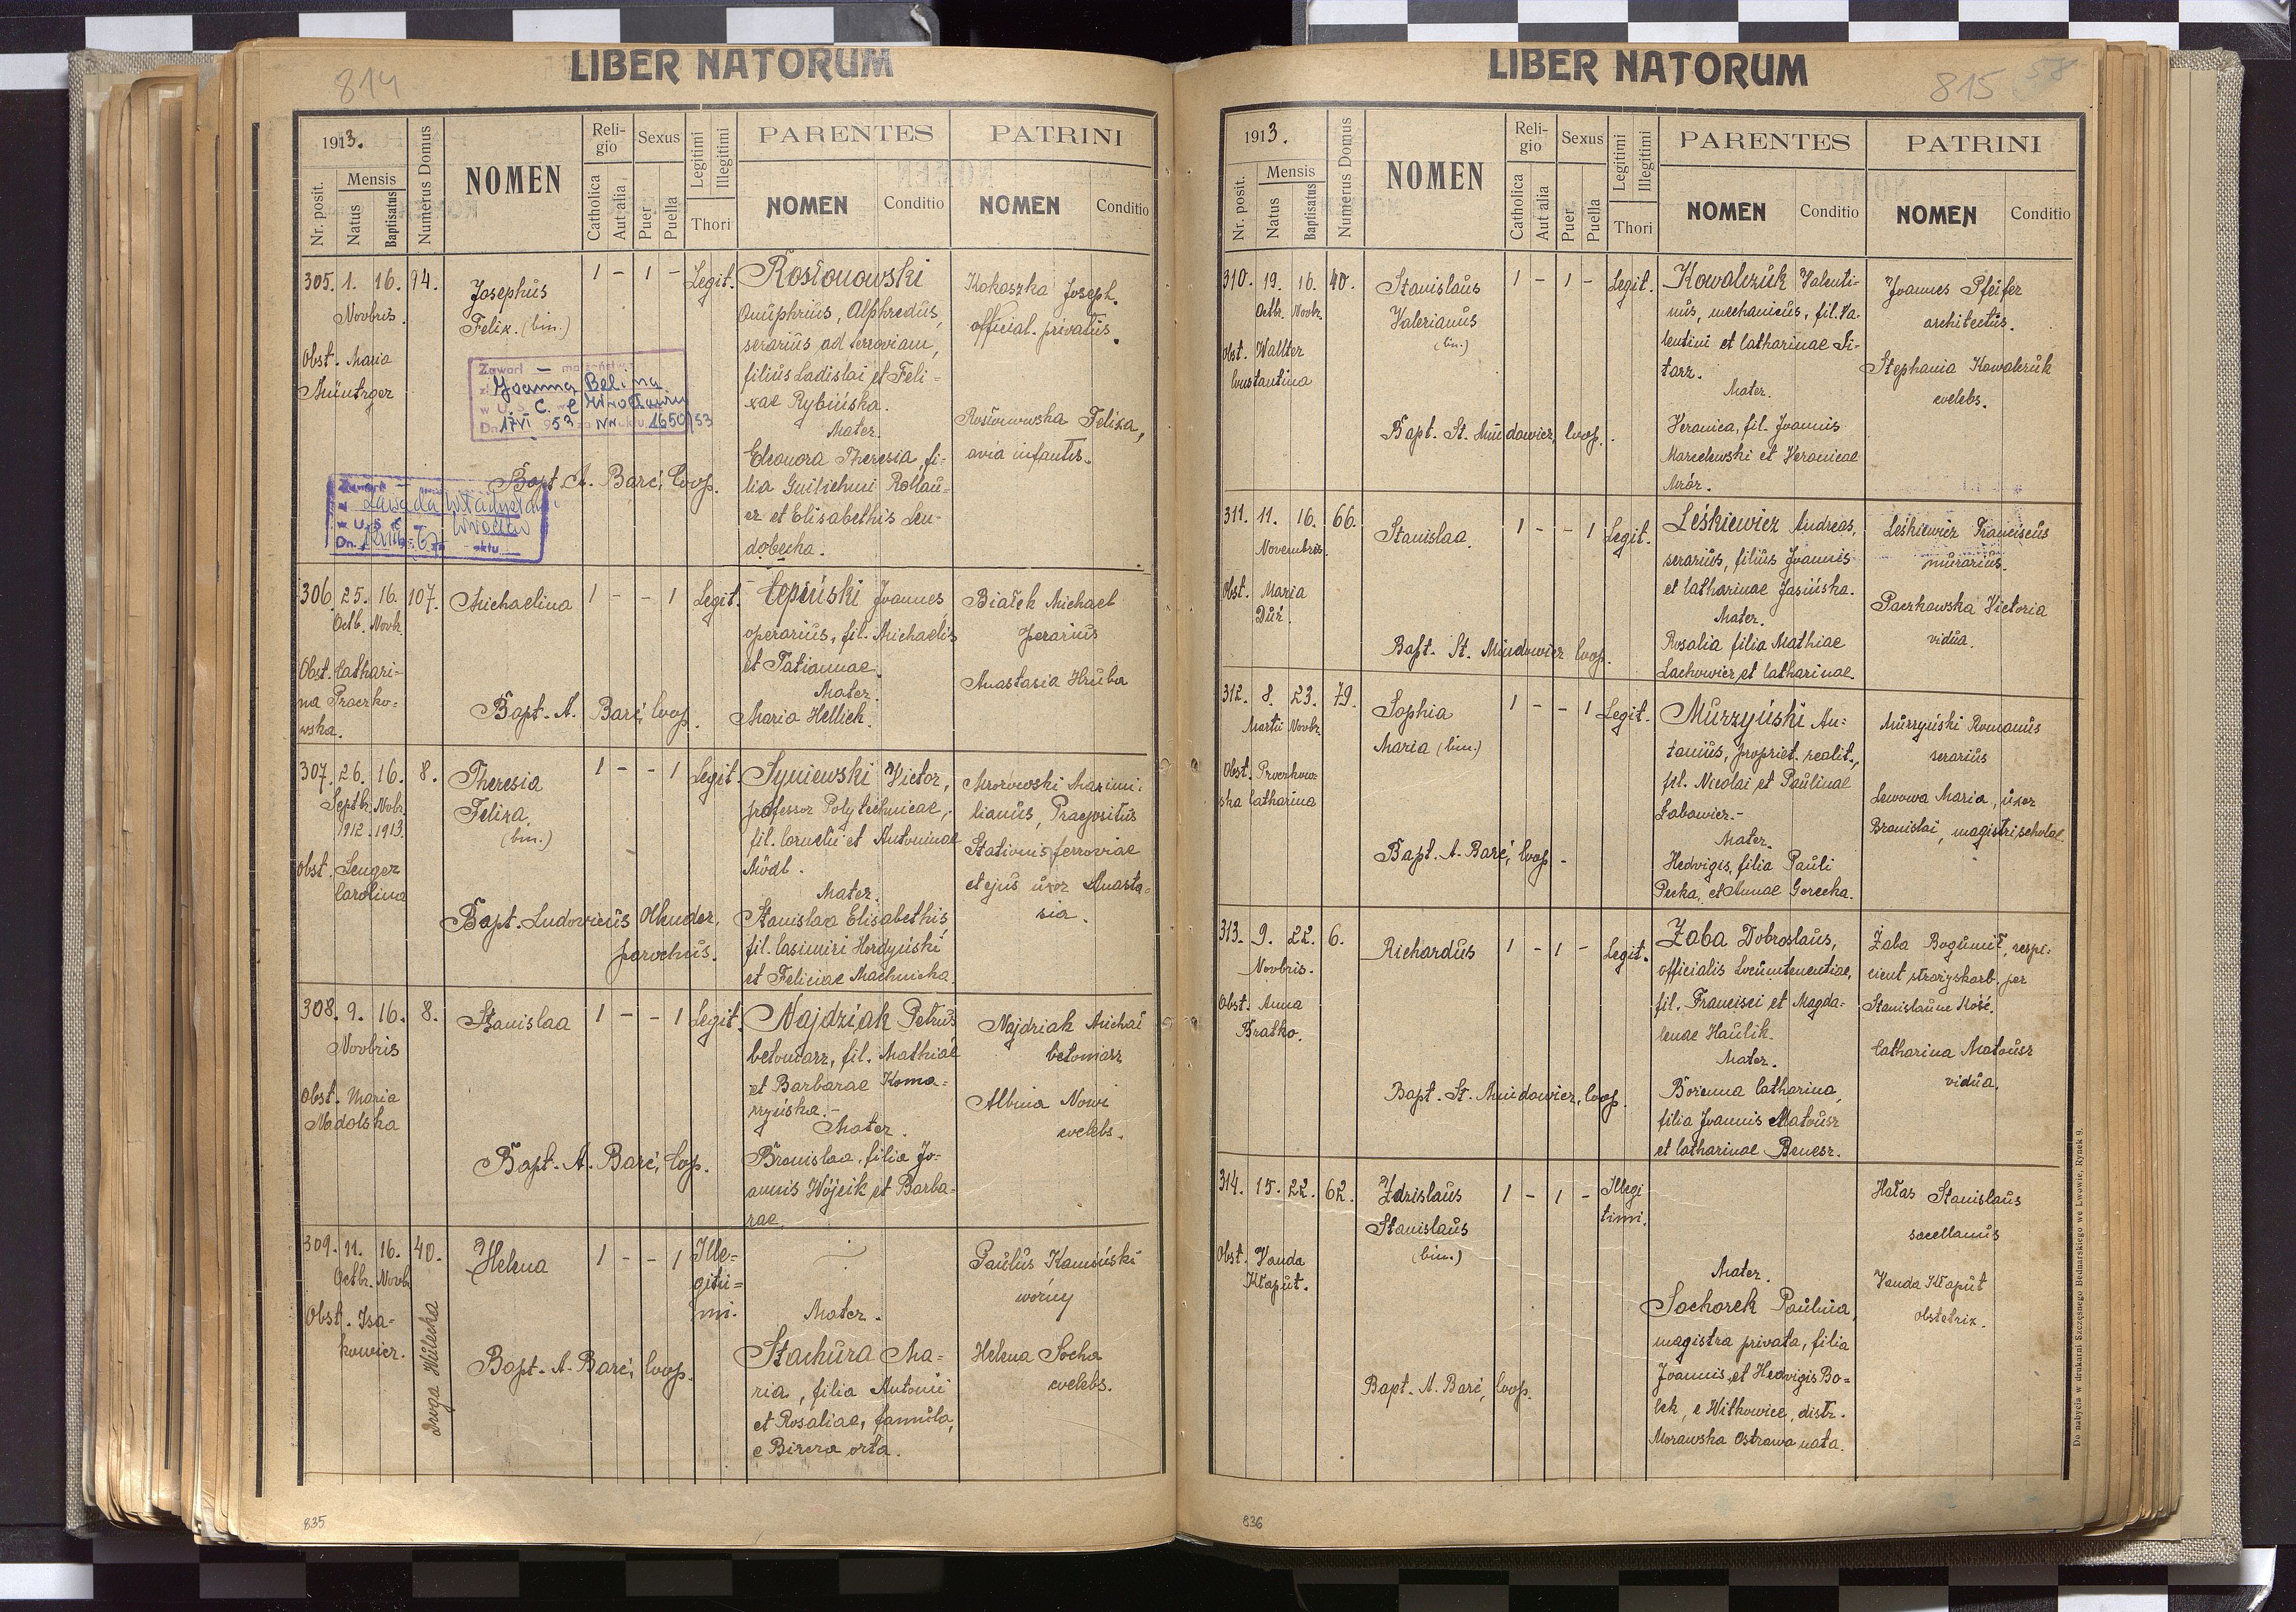 814
LIBER NATORUM
1913.
Nr. posit.
Mensis
Natus
Baptisatus
Numerus Domus
NOMEN
Reli-
gio
Catholica
Aut alia
Sexus
Puer
Puella
Legitimi
Illegitimi
Thori
PARENTES
NOMEN
Conditio
PATRINI
NOMEN
Conditio
305. 1. 16. 94.
Novbris.
Obst. Maria
Josephus
Felix. (bin.)
1 - 1 - Legit.
Zawarł — małżeństwo
Joanna Belina
Dn. 17 VI 953 Nr aktu 1650/53
Zawada Władysław
Wrocław
Bapt. A. Barć, Coop.
Onuphrius, Alphredus,
serarius ad ferroviam,
filius Ladislai et Feli-
xae Rybińska.
Mater.
Eleonora Theresia, fi-
lia Guilielmi Rollau-
er et Elisabethis Len-
dobecka.
Kokoszka Joseph.
official. privatus.
Felixa,
avia infantis.
306. 25. 16. 107.
Octb. Novbr.
Obst. Cathari-
na Praczko-
wska.
Michaelina
1 - - 1 Legit.
Bapt. A. Barć, Coop.
Łepiński Joannes
operarius, fil. Michaelis
et Tatiannae.
Mater.
Maria Hellich.
Białek Michael
operarius
Anastasia Hruba
307. 26. 16. 8.
Septbr. Novbr.
1912. 1913.
Obst. Senger
Carolina
Theresia
Felixa.
(bin.)
1 - - 1 Legit
Bapt. Ludovicus Olkuder,
parochus.
Syniewski Victor,
professor Polytechnicae,
fil. Cornelii et Antoninae
Mödl.
Mater.
Stanislaa Elisabethis,
fil. Casimiri Hordyński
et Feliciae Machnicka.
Mrozowski Maximi-
lianus, Praepositus
Stationis ferroviae
et ejus uxor Anasta-
sia.
308. 9. 16. 8.
Novbris
Obst. Maria
Nadolska
Stanislaa
1 - - 1 Legit.
Bapt. A. Barć, Coop.
Najdziak Petrus
betoniarz, fil. Mathiae
et Barbarae Koma-
rzyńska.-
Mater.
Bronislaa, filia Jo-
annis Wójcik et Barba-
rae.
Najdziak Michał
betoniarz
Albina Nowi
coelebs.
309. 11. 16. 40.
Octbr. Novb.
Obst. Isa-
kowicz.
Droga Wulecka
Helena
1 - - 1 Ille-
giti-
mi.
Bapt. A. Barć, Coop.
Mater.
Stachura Ma-
ria, filia Antonii
et Rosaliae, famula,
e Bircza orta.
Paulus Kamiński
woźny
Helena Socha
coelebs.
835
815 58
LIBER NATORUM
1913.
Nr. posit.
Mensis
Natus
Baptisatus
Numerus Domus
NOMEN
Reli-
gio
Catholica
Aut alia
Sexus
Puer
Puella
Legitimi
Illegitimi
Thori
PARENTES
NOMEN
Conditio
PATRINI
NOMEN
Conditio
310. 19. 16. 40.
Octbr. Novbr.
Obst. Wallter
Constantina
Stanislaus
Valerianus
(bin.)
1 - 1 - Legit.
Bapt. St. Mindowicz, Coop.
Kowalczuk Valenti-
nus, mechanicus, fil. Va-
lentini et Catharinae Si-
tarz.
Mater.
Veronica, fil. Joannis
Marcelewski et Veronicae
Mróz.
Joannes Pfeifer
architectus.
Stephania Kowalczuk
coelebs.
311. 11. 16. 66.
Novembris.
Obst. Maria
Duź.
Stanislaa.
1 - - 1 Legit.
Bapt. St. Mindowicz Coop.
Leśkiewicz Andreas,
serarius, filius Joannis
et Catharinae Jasińska.
Mater.
Rosalia filia Mathiae
Lachowicz et Catharinae.
Leśkiewicz Franciscus
murarius.
Paczkowska Victoria
vidua.
312. 8. 23. 79.
Martii Novbr.
Obst. Proczkow-
ska Catharina
Sophia
Maria (bin.)
1 - - 1 Legit.
Bapt. A. Barć, Coop.
Murzyński An-
tonius, propriet. realit.,
fil. Nicolai et Paulinae
Łabowicz.-
Mater.
Hedvigis, filia Pauli
Pecka, et Annae Gorecka.
Murzyński Romanus
serarius
Lewowa Maria, uxor
Bronislai, magistri scholae.
313. 9. 22. 6.
Novbris.
Obst. Anna
Bratko.
Richardus
1 - 1 - Legit.
Bapt. St. Mindowicz, Coop.
Żaba Dobroslaus,
officialis Locumtenentiae,
fil. Francisci et Magda-
lenae Haulik.
Mater.
Bożenna Catharina,
filia Joannis Matousz
et Catharinae Benesz.
Żaba Bogumił, respi-
cient straży skarb. per
Stanislaum Kość.
Catharina Matousz
vidua.
314. 15. 22. 62.
Obst. Vanda
Kłaput.
Zdzislaus
Stanislaus
(bin.)
1 - 1 - Illegi
timi.
Bapt. A. Barć, Coop.
Mater.
Sochorek Paulina,
magistra privata, filia
Joannis et Hedvigis Bo-
lek, e Witkowice, distr.
Morawska Ostrawa nata.
Hałas Stanislaus
sacellanus
Vanda Kłaput
obstetrix.
Do nabycia w drukarni Szczęsnego Bednarskiego we Lwowie, Rynek 9.
836